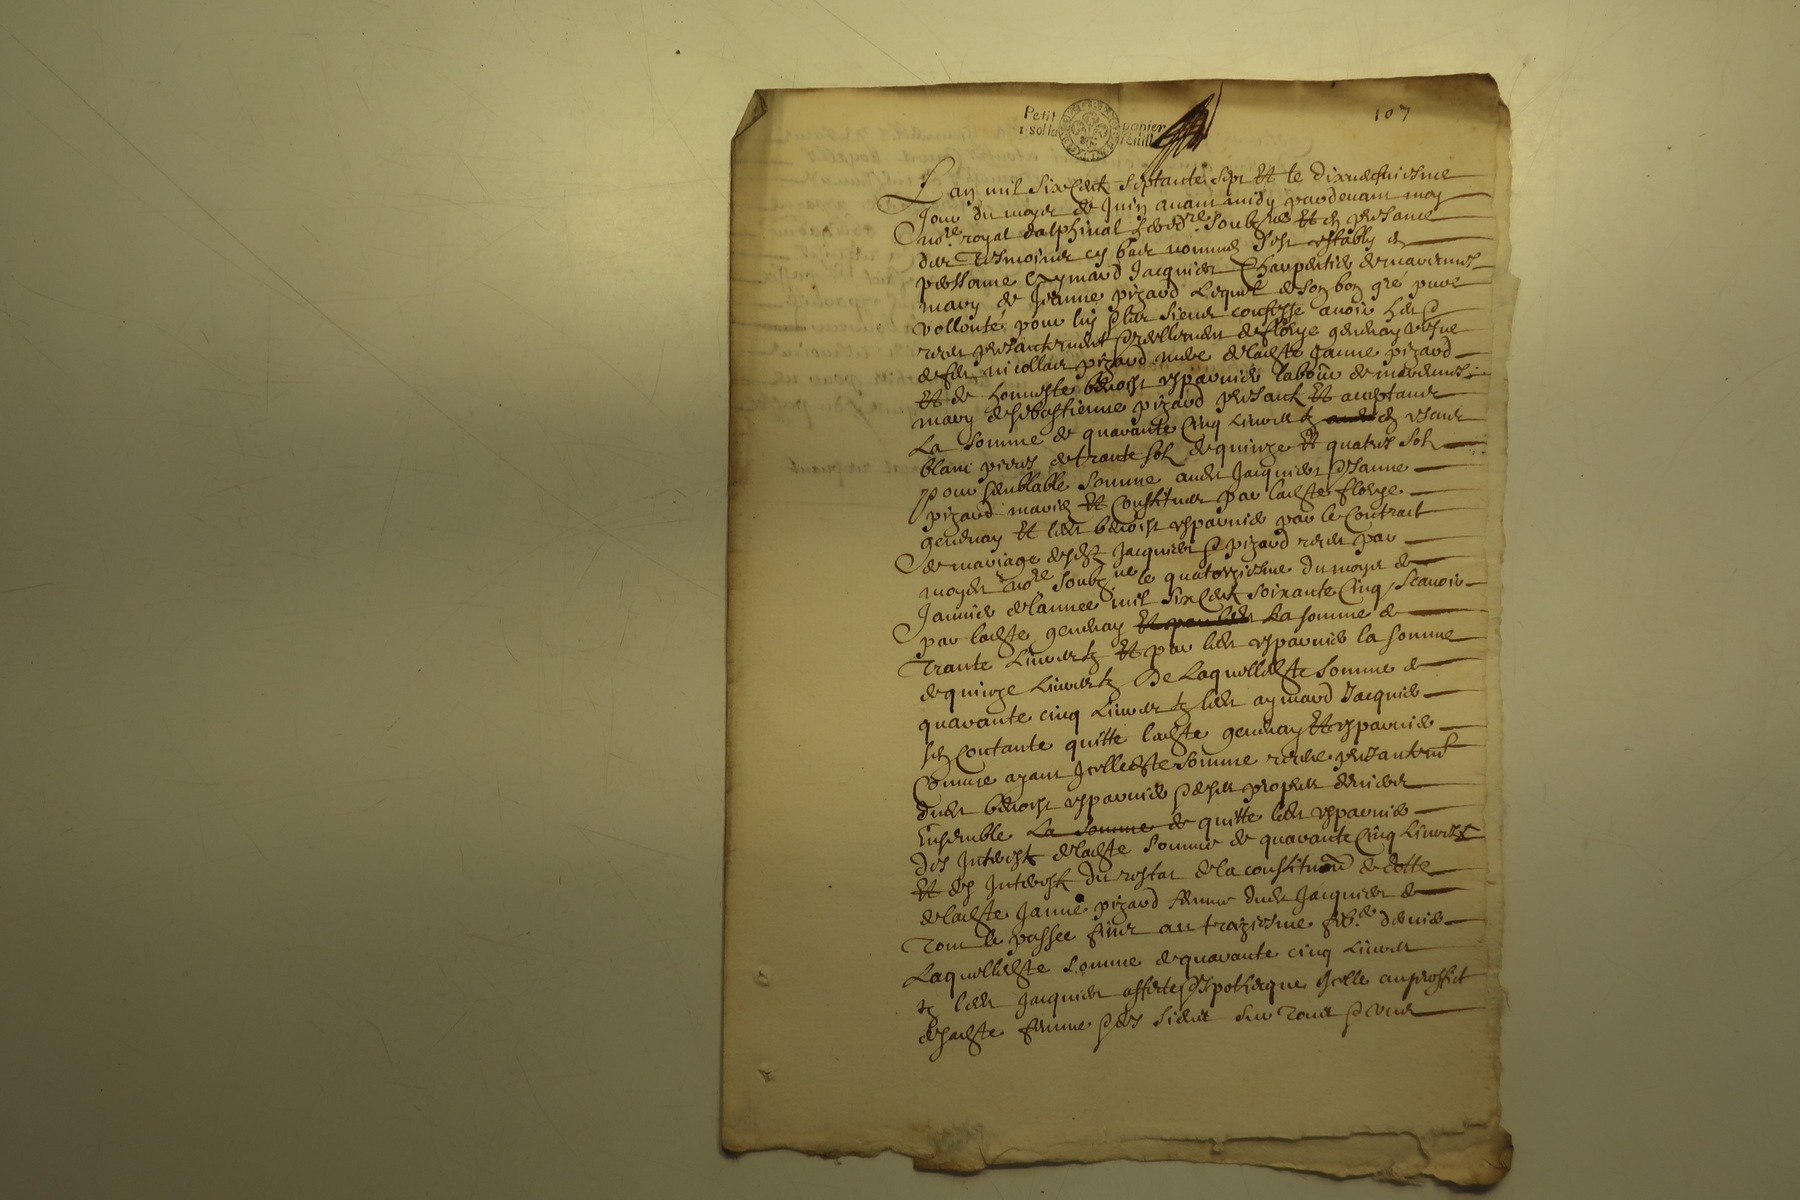 Petit papier
1 sol la feuille
107
L an mil six cent septante sept et le dixneufviesme
Jour du moys de Juin avant midy par devant moy
no.re royal dalphinal soubz.ne et en presance
des tesmoins cy bas nommes s'est estably en
personne Eymard Jacquier Charpentier de
mary de Jeanne pizard Lequel de son bon gré pure
vollonté pour luy & les siens confesse avoir heu &
receu presantement & reellement de gendray vefve
de feu nicollas pizard mere de ladte Janne pizard
et de honneste benoist esparvier labour de
mary de sebastienne pizard presant et acceptant
La somme de quarante cinq Livres tz en escus
blanc pieces de trante solz de quinze et quatre solz
pour semblable somme audt Jacquier & Janne
pizard mariez et constituee par ladte
gendray et ledt benoist esparvier par le Contract
de mariage desdtz Jacquier & pizard receu par
moydt no.re soubz.ne le quatorziesme du moys de
Janvier de lannee mil six cent soixante cinq Scavoir
par ladte gendray et par ledt La somme de
Trante Livres tz et par ledt esparvier la somme
de quinze Livres tz De Laquelledte somme de
quarante cinq Livres tz ledt aymard Jacquier
se contante quitte ladte gendray et esparvier
Comme ayant Jcelledte somme receue presantemt
dudt benoist esparvier & de ses propres deniers
Ensemble La somme de quitte ledt esparvier
des Interestz de ladte somme de quarante Cinq Livres tz
et des Interestz du restat de la constituon de dotte
de ladte Janne pizard femme dudt Jacquier de
Tout le passee finis au traziesme dernier
Laquelledte somme de quarante cinq Livres
tz ledt Jacquier affecte & Ypotheque Jcelle au proffict
de sadte femme & des siens sur tous &